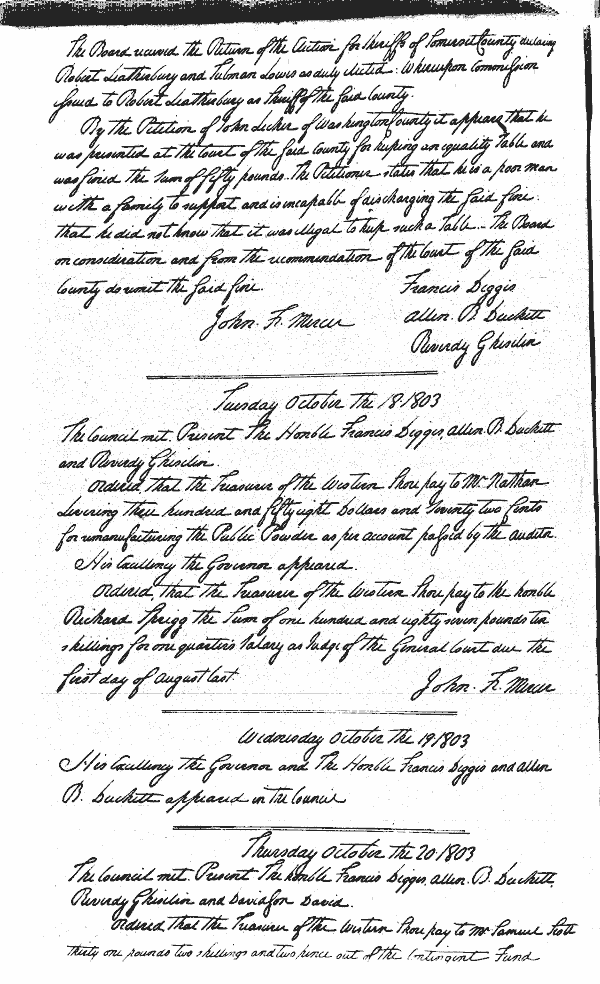 The Board received the Return of the Election for Sheriffs of Somerset County declaring
Robert Leatherbury and Tubman Lowes as duly elected. Whereupon Commission
issued to Robert Leatherbury as Sheriff of the said County.
By the Petition of John Lecker of Washington County it appears that he
was presented at the Court of the said County for keeping an equality Table and
was fined the Sum of fifty pounds. The Petitioner states that he is a poor man
with a family to support and is incapable of discharging the said fine.
that he did not know that it was illegal to keep such a Table.. The Board
on consideration and from the recommendation of the Court of the said
County do remit the said fine.
Francis Digges
John. F. Mercer
Allen. B. Duckett
Reverdy Ghiselin
Tuesday October the 18. 1803
The Council met. Present The Honble Francis Digges, Allen. B. Duckett
and Reverdy Ghiselin.
Ordered, that the Treasurer of the Western Shore pay to Mr. Nathan
Levering three hundred and fifty eight Dollars and Seventy two Cents
for remanufacturing the Public Powder as per account passed by the Auditor.
His Excellency the Governor appeared.
Ordered, that the Treasurer of the Western Shore pay to the honble
Richard Sprigg the Sum of one hundred and eighty seven pounds ten
shillings for one quarters Salary as Judge of the General Court due the
first day of August last.
John. F. Mercer
Wednesday October the 19 1803
His Excellency the Governor and The Honble Francis Digges and Allen
B. Duckett appeared in the Council
Thursday October the 20. 1803
The Council met. Present The honble Francis Digges, Allen. B. Duckett,
Reverdy Ghiselin and Davidson David.
Ordered that the Treasurer of the Western Shore pay to Mr Samuel Scott
thirty one pounds two shillings and two pence out of the Contingent Fund